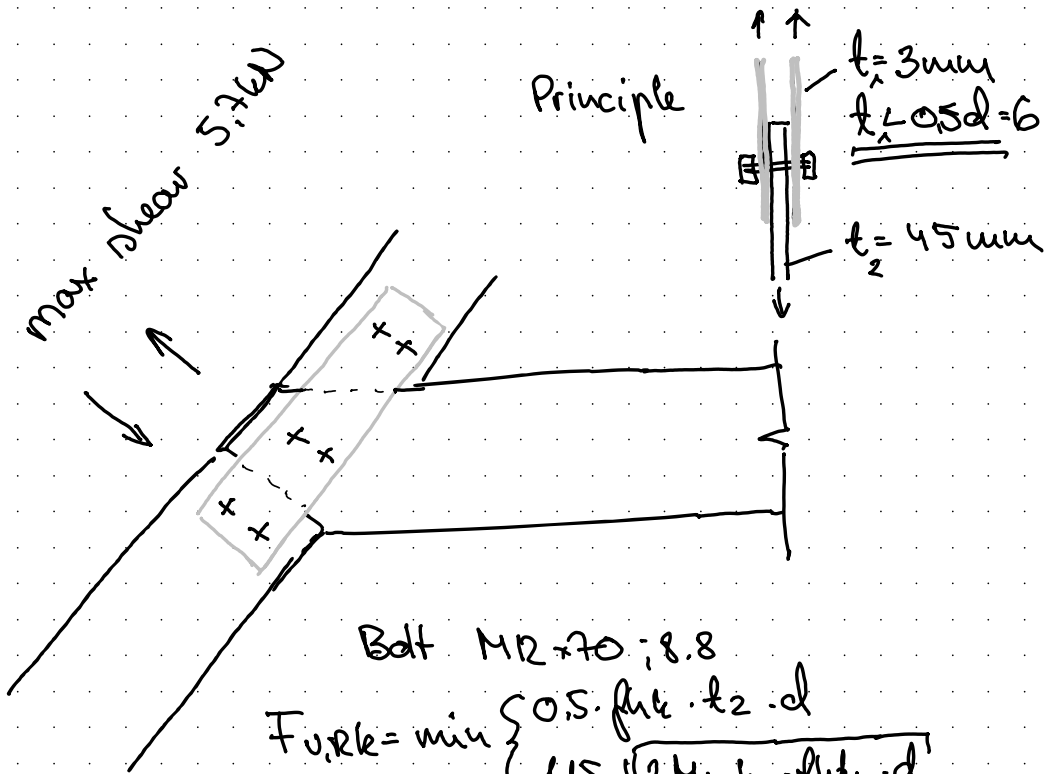 max shear 5,7kN
Principle
t₁= 3mm
t₁<0,5d=6
t₂= 45mm
Bolt M12x70 ; 8.8
Fv,Rk= min { 0,5·fhk·t₂·d